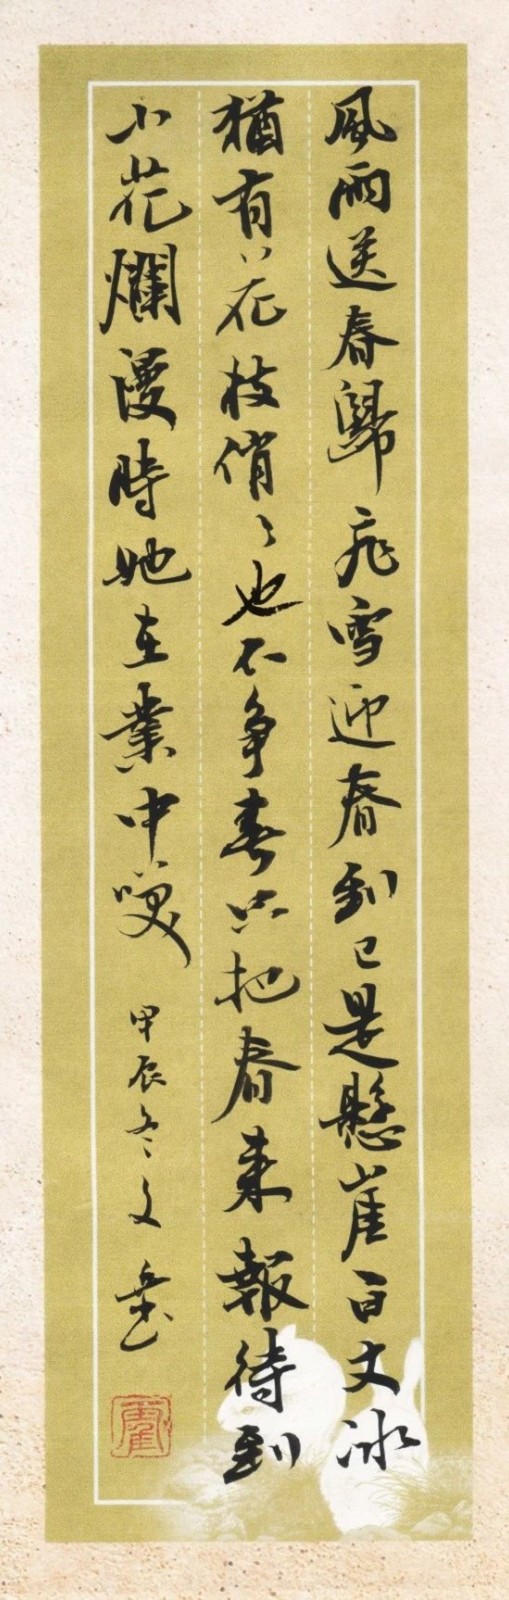 風雨送春歸飛雪迎春到已是懸崖百丈冰
猶有花枝俏〻也不争春只把春來報待到
山花爛漫時她在叢中咲 甲辰冬文岳